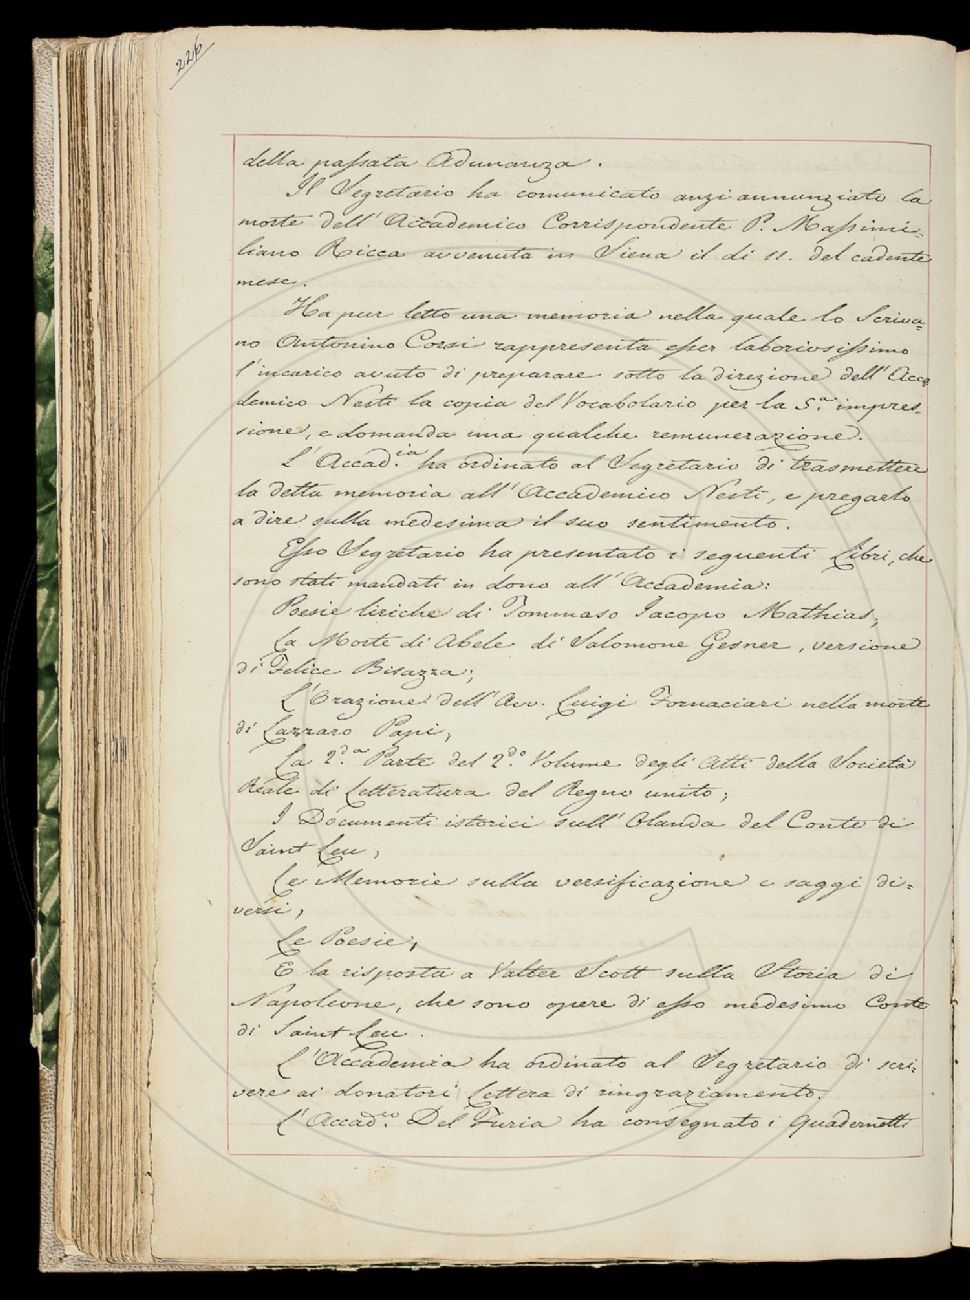 226
della passata Adunanza.
Il Segretario ha comunicato anzi annunziato la
morte dell'Accademico Corrispondente P. Massimi=
liano Ricca avvenuta in Siena il di 11. del cadente
mese.
Ha pur letto una memoria nella quale lo Scriva=
no Antonino Corsi rappresenta esser laboriosissimo
l'incarico avuto di preparare sotto la direzione dell'Acca
demico Nesti la copia del Vocabolario per la 5.a impres=
sione, e domanda una qualche remunerazione.
L'Accad.ia ha ordinato al Segretario di trasmettere
la detta memoria all'Accademico Nesti, e pregarlo
a dire sulla medesima il suo sentimento.
Esso Segretario ha presentato i seguenti Libri, che
sono stati mandati in dono all'Accademia:
Poesie liriche di Tommaso Jacopo Mathias,
La Morte di Abele di Salomone Gesner, versione
di Felice Bisazza;
L'Orazione dell'Avv. Luigi Fornaciari nella morte
di Lazzaro Papi,
La 2.da Parte del 2.do Volume degli Atti della Società
Reale di Letteratura del Regno unito;
I Documenti istorici sull'Olanda del Conte di
Saint Leu,
Le Memorie sulla versificazione e saggi di=
versi,
Le Poesie,
E la risposta a Valter Scott sulla Storia di
Napoleone, che sono opere di esso medesimo Conte
di Saint Leu.
L'Accademia ha ordinato al Segretario di scri=
vere ai donatori Lettera di ringraziamento.
L'Accad.co Del Furia ha consegnato i quadernetti